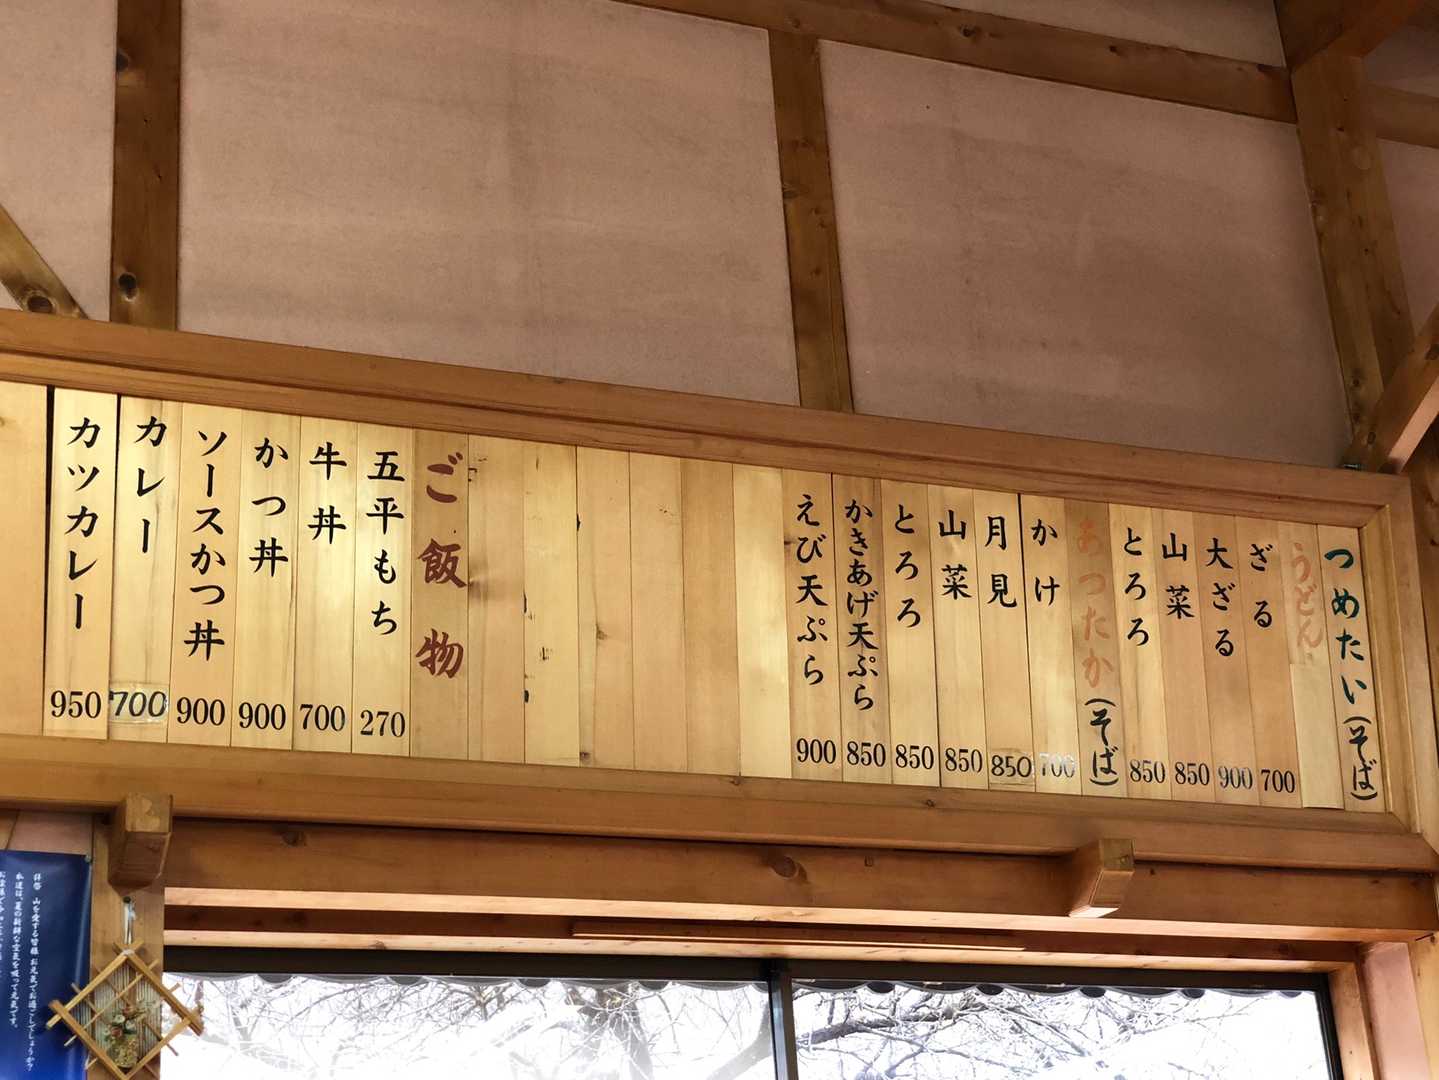 つめたい(そば)
うどん
ざる 700
大ざる 900
山菜 850
とろろ 850
あつたか(そば)
かけ 700
月見 850
山菜 850
とろろ 850
かきあげ天ぷら 850
えび天ぷら 900
ご飯物
五平もち 270
牛丼 700
かつ丼 900
ソースかつ丼 900
カレー 700
カツカレー 950
拝啓 山を愛する皆様 お元気でお過ごしでしょうか?